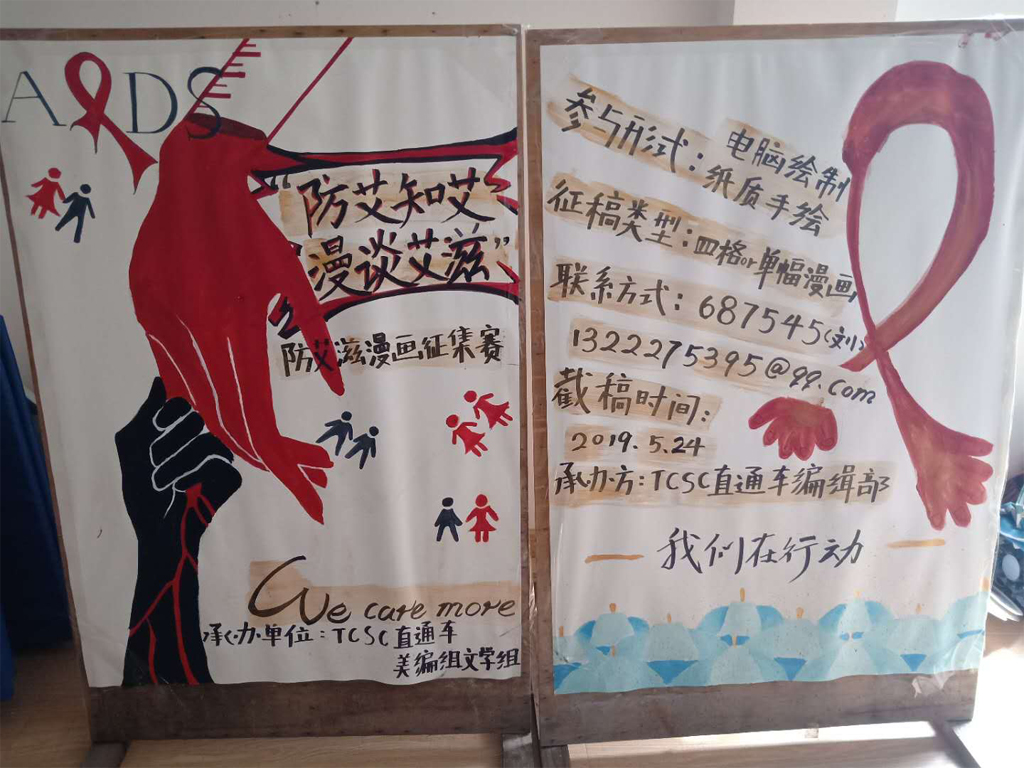 AIDS
“防艾知艾
漫谈艾滋”
防艾滋漫画征集赛
We care more
承办单位:TCSC直通车
美编组文学组
参与形式:电脑绘制
纸质手绘
征稿类型:四格or单幅漫画
联系方式:687545(刘)
1322275395@qq.com
截稿时间:
2019.5.24
承办方:TCSC直通车编缉部
我们在行动